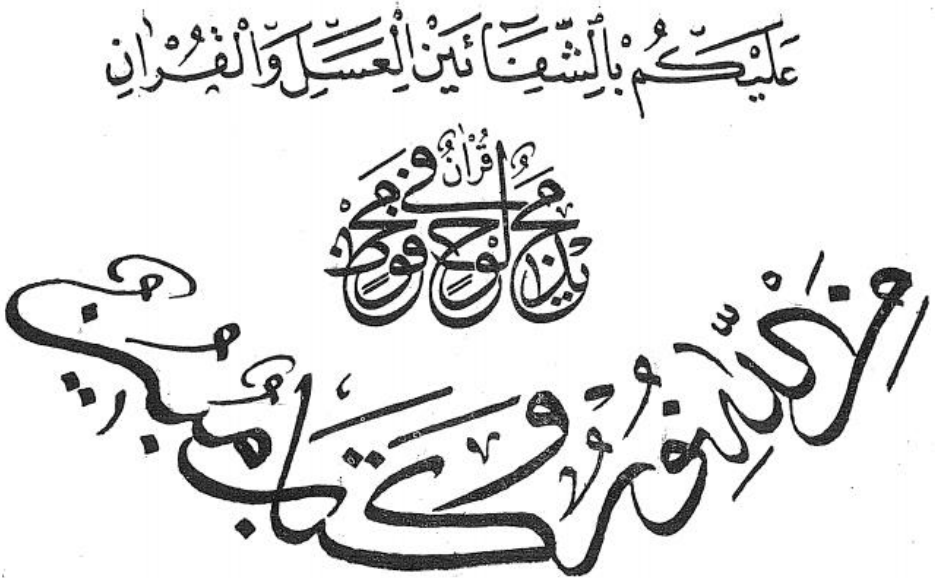 عَلَيْكُمْ بِالشِّفَائَيْنِ الْعَسَلِ وَالْقُرْاٰنِ
قُرْاٰنٌ مَجِيْدٌ فِي لَوْحٍ مَحْفُوْظٍ
مِنَ اللّٰهِ نُوْرٌ وَكِتَابٌ مُبِيْنٌ